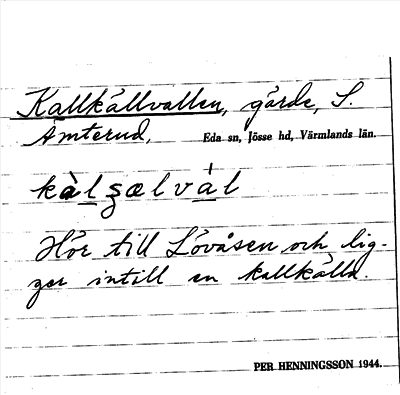 Kallkällvallen, gärde, S.
Åmterud, Eda sn, Jösse hd, Värmlands län.
kàlʂælvál
Hör till Lövåsen och lig-
ger intill en kallkälla.
PER HENNINGSSON 1944.